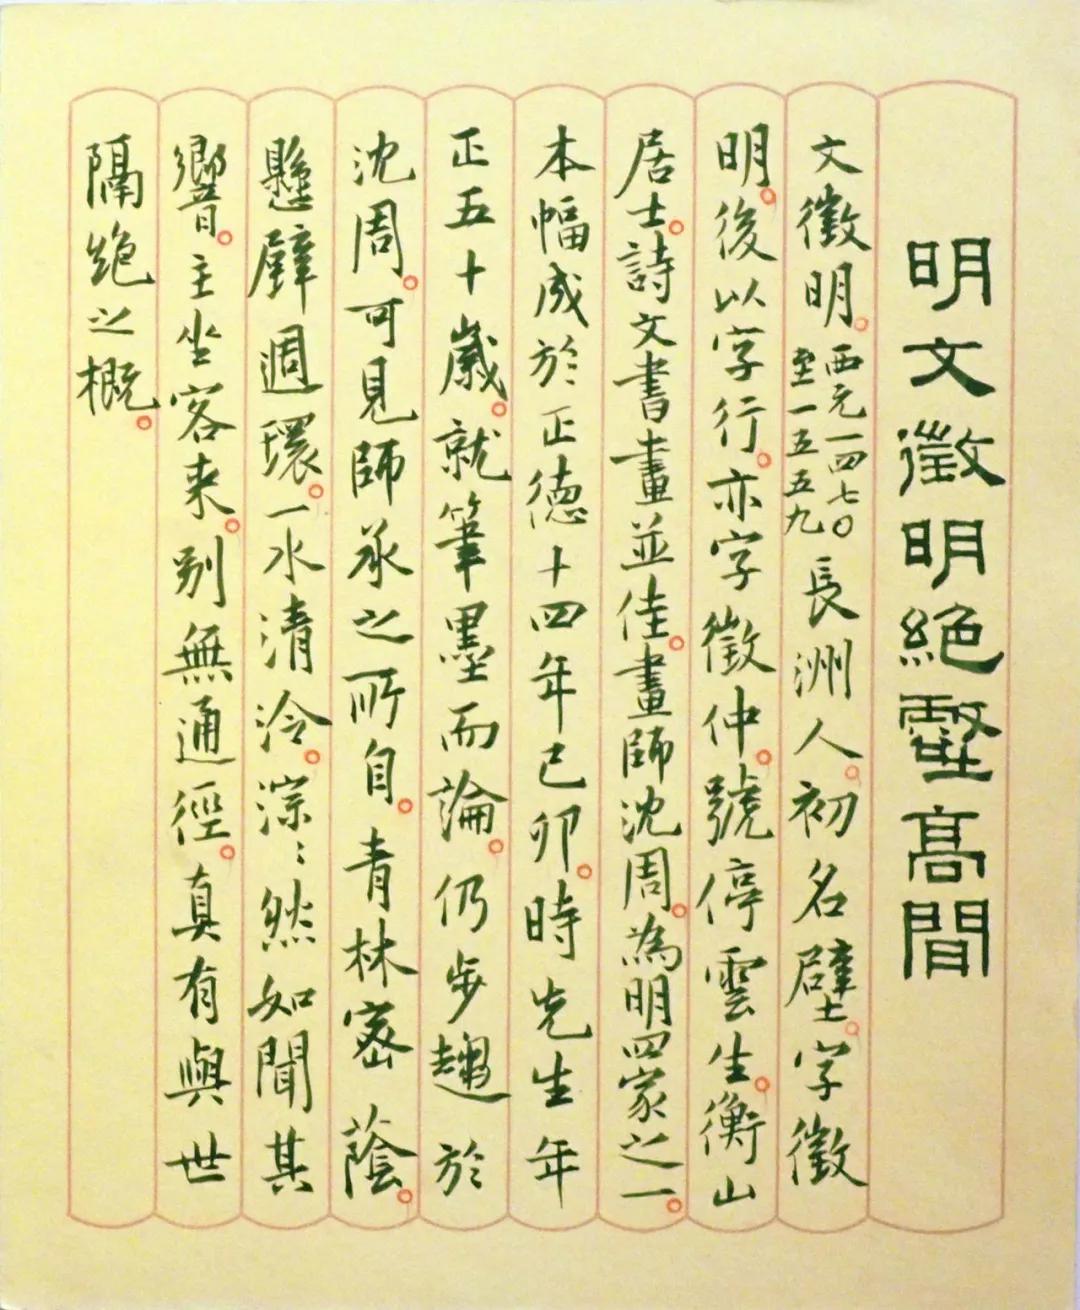 明文徵明絕壑高閒
文徵明。西元一四七〇至一五五九長洲人。初名壁。字徵
明。後以字行。亦字徵仲。號停雲生。衡山
居士。詩文書畫並佳。畫師沈周。為明四家之一。
本幅成於正德十四年己卯。時先生年
正五十歲。就筆墨而論。仍步趨於
沈周。可見師承之所自。青林密蔭。
懸壁週環。一水清泠。淙〻然如聞其
響。主坐客来。別無通徑。真有與世
隔絕之概。